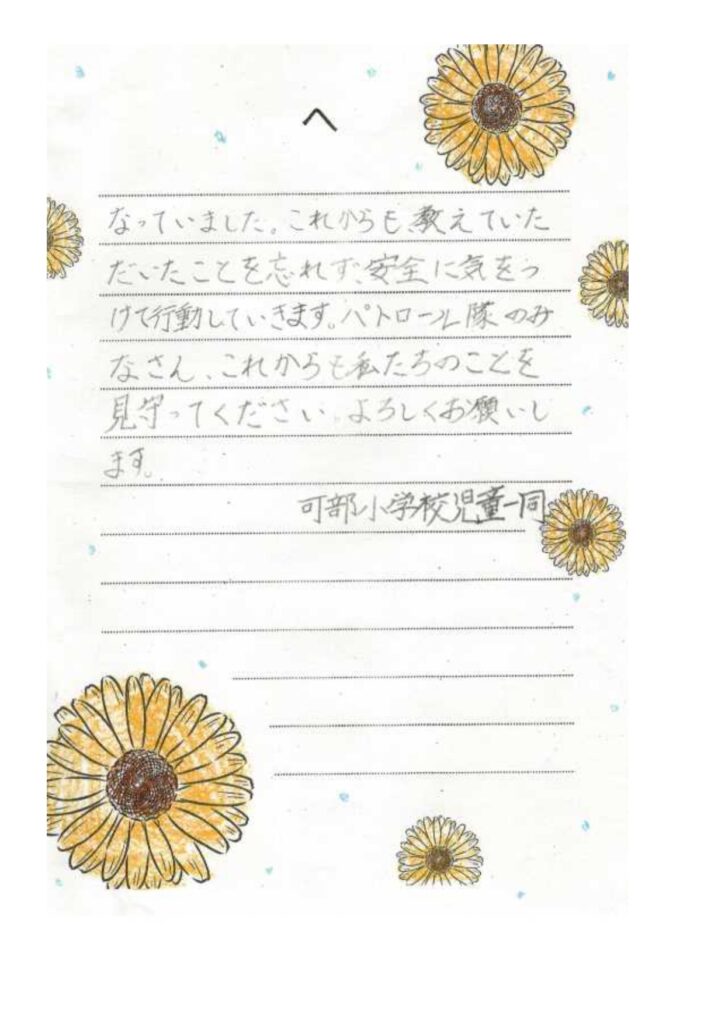 へ
なっていました。これからも、教えていた
だいたことを忘れず、安全に気をつ
けて行動していきます。パトロール隊のみ
なさん、これからも私たちのことを
見守ってください。よろしくお願いし
ます。
可部小学校児童一同